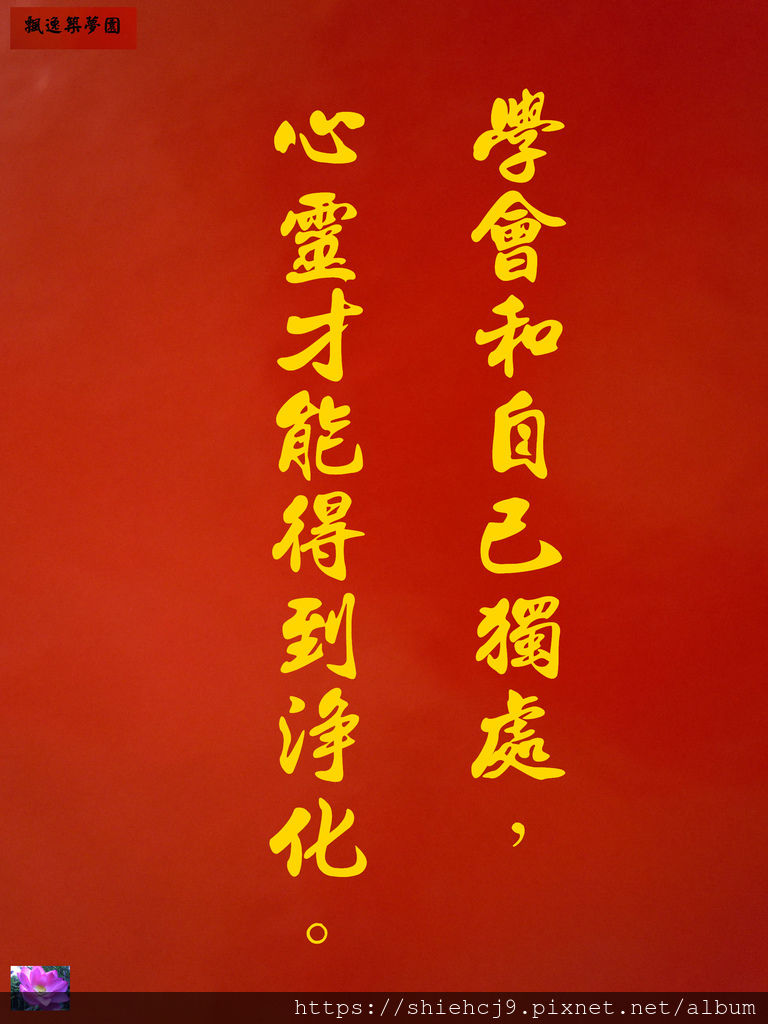 飄逸築夢園
學會和自己獨處，
心靈才能得到淨化。
https://shiehcj9.pixnet.net/album